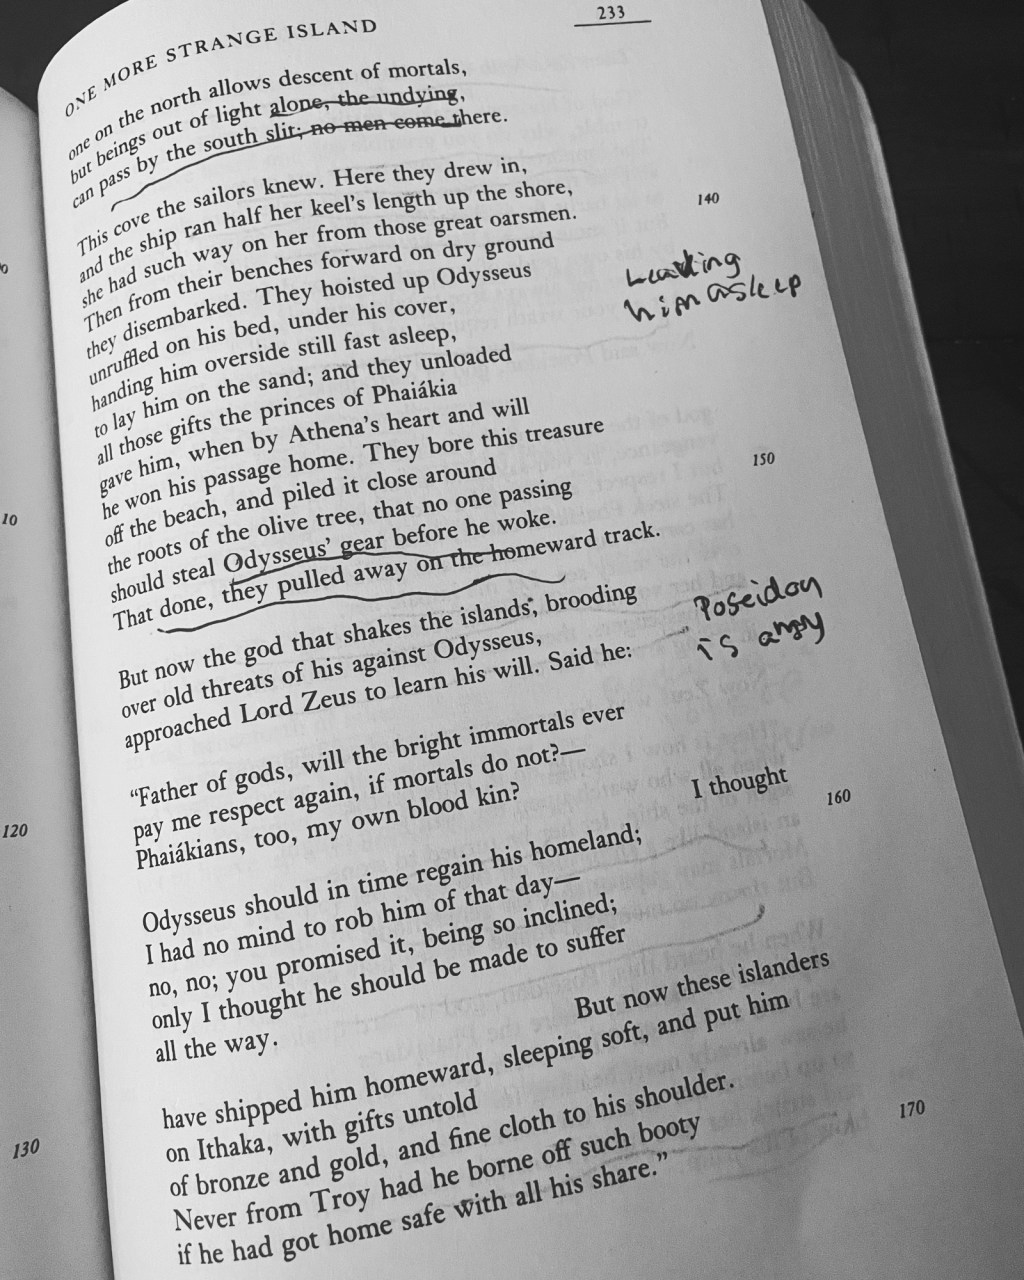 ONE MORE STRANGE ISLAND 233
one on the north allows descent of mortals,
but beings out of light alone, the undying,
can pass by the south slit; no men come there.
This cove the sailors knew. Here they drew in,
and the ship ran half her keel's length up the shore, 140
she had such way on her from those great oarsmen.
Then from their benches forward on dry ground
they disembarked. They hoisted up Odysseus
unruffled on his bed, under his cover,
handing him overside still fast asleep,
to lay him on the sand; and they unloaded
all those gifts the princes of Phaiákia
gave him, when by Athena's heart and will
he won his passage home. They bore this treasure
off the beach, and piled it close around 150
the roots of the olive tree, that no one passing
should steal Odysseus' gear before he woke.
That done, they pulled away on the homeward track.
But now the god that shakes the islands, brooding
over old threats of his against Odysseus,
approached Lord Zeus to learn his will. Said he:
"Father of gods, will the bright immortals ever
pay me respect again, if mortals do not?—
Phaiákians, too, my own blood kin?
I thought 160
Odysseus should in time regain his homeland;
I had no mind to rob him of that day—
no, no; you promised it, being so inclined;
only I thought he should be made to suffer
all the way.
But now these islanders
have shipped him homeward, sleeping soft, and put him
on Ithaka, with gifts untold
of bronze and gold, and fine cloth to his shoulder.
Never from Troy had he borne off such booty 170
if he had got home safe with all his share."
him asleep
Poseidon
is angry
10
120
130